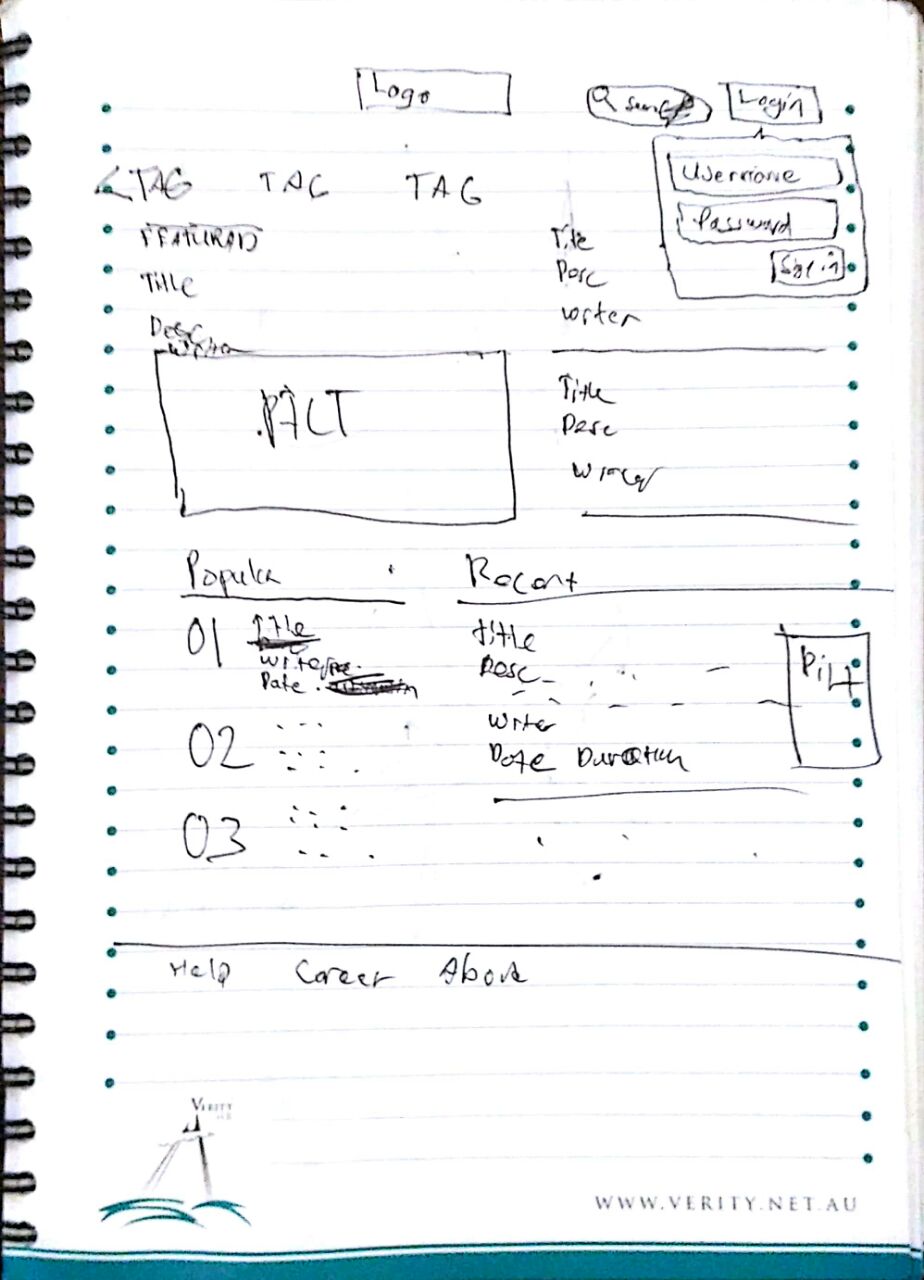 Logo
Search Login
Username
Password
Sign in
<TAG TAG TAG
FEATURED
Title
Desc
Writer
Title
Desc
Writer
PICT
Title
Desc
Writer
Popular
01 Title
Writer
Date
02
03
Recent
Title
Desc
Writer
Date Duration
Pict
Help Career About
VERITY
WWW.VERITY.NET.AU